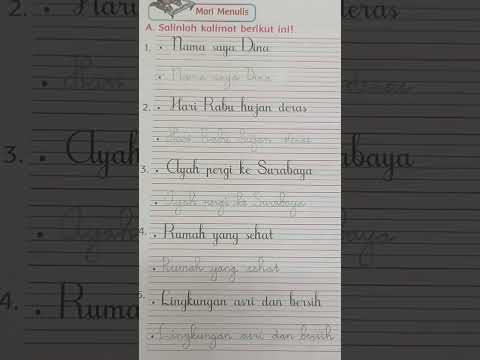 Mari Menulis
A. Salinlah kalimat berikut ini!
1. • Nama saya Dina
• Nama saya Dina
2. • Hari Rabu hujan deras
• Hari Rabu hujan deras
3. • Ayah pergi ke Surabaya
• Ayah pergi ke Surabaya
4. • Rumah yang sehat
• Rumah yang sehat
5. • Lingkungan asri dan bersih
• Lingkungan asri dan bersih